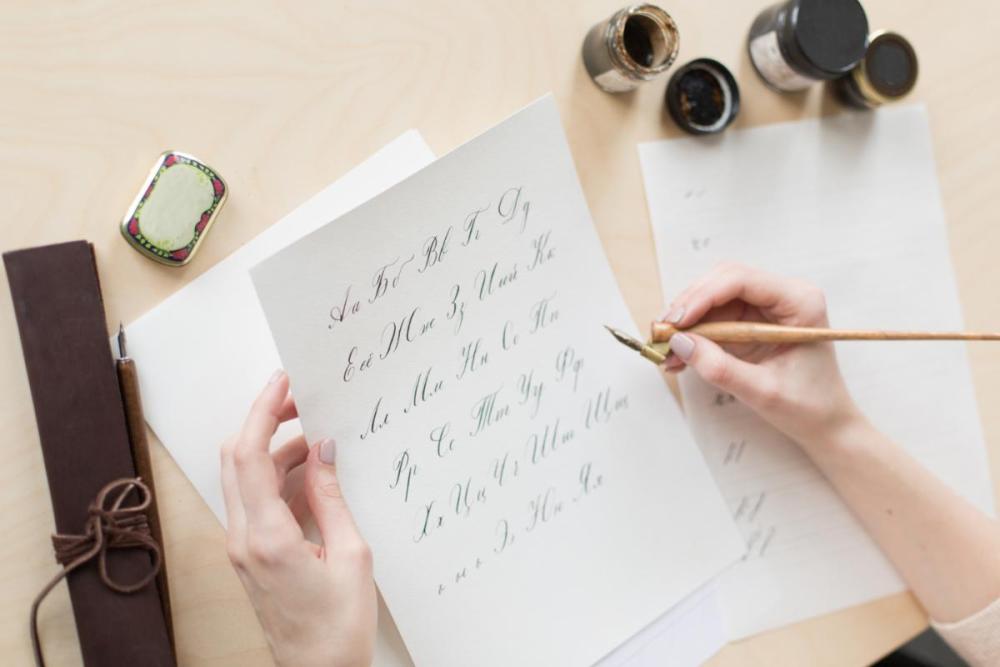 Аа Бб Вв Гг Дд
Ее Жж Зз Ии Йй Кк
Лл Мм Нн Оо Пп
Рр Сс Тт Уу Фф
Хх Цц Чч Шш Щщ
ъ ы ь Ээ Юю Яя